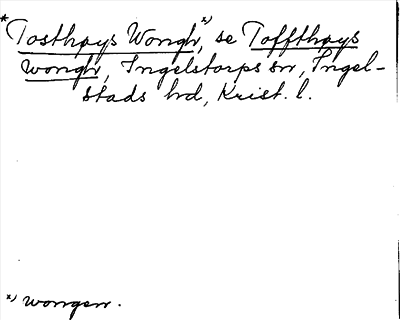 * Tosthøys Wongh, x) se Toffthøys
wongh, Ingelstorps sn, Ingel-
stads hd, Krist. l.
x) wongen.